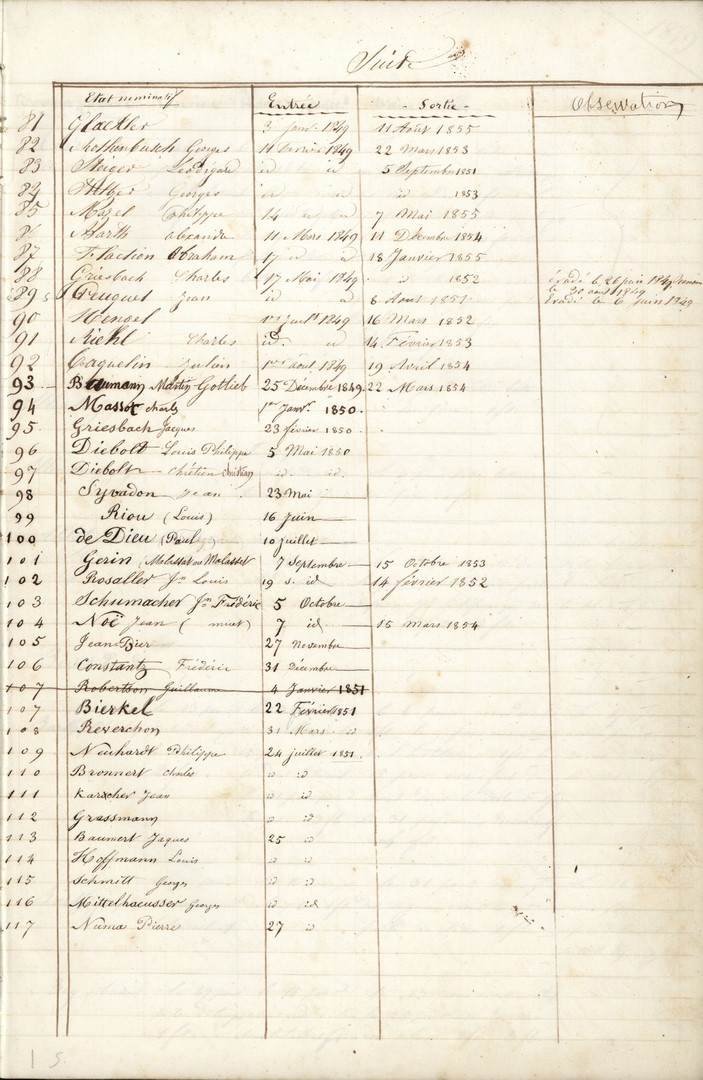 Suite
Etat nominatif Entrée Sortie Observation
81 Glaetler 3 Janv. 1849 11 Aout 1855
82 Mothenbusch Georges 11 Fevrier 1849 22 Mars 1853
83 Steiger Léodigard id id 5 Septembre 1851
84 Georges id id id 1853
85 Mazel Philippe 14 id id 7 Mai 1855
86 Marth alexandre 11 Mars 1849 11 Décembre 1854
87 Flaction Abraham 17 id id 18 Janvier 1855
88 Griesbach Charles 17 Mai 1849 id 1852 évadé le 26 juin 1849
le 30 aout 1849
89 Peuquet Jean id id 8 Aout 1851 Evadé le 6 Juin 1849
90 Hensel 1er Juill. 1849 16 Mars 1852
91 Riehl Charles id. id 14 Février 1853
92 Coquelin Julien 1er aout 1849 19 Avril 1854
93 Baumann Martin Gottlieb 25 Décembre 1849 22 Mars 1854
94 Massot charles 1er Janv. 1850.
95 Griesbach Jacques 23 février 1850
96 Diebolt Louis Philippe 5 Mai 1850
97 Diebolt Chrétien christian id. id.
98 Syvadon Jean 23 Mai
99 Riou (Louis) 16 Juin
100 de Dieu (Paul) 10 juillet
101 Gerin (Malassat ou Malasset 7 Septembre 15 Octobre 1853
102 Rosaller Jn Louis 19 s. id 14 février 1852
103 Schumacher Jn Frédéric 5 Octobre
104 Noï Jean (muet) 7 id 15 Mars 1854
105 Jean Bier 27 Novembre
106 Constantz Frédéric 31 Décembre
107 Robertson Guillaume 4 Janvier 1851
107 Bierkel 22 Février 1851
108 Reverchon 31 Mars id
109 Neuhardt Philippe 24 juillet 1851.
110 Bronnert charles id id
111 Karcher Jean id id
112 Grassmann id id
113 Baumert Jaques 25 id
114 Hoffmann Louis id id
115 Schmitt Georges id id
116 Mittelhaeusser Georges id id
117 Numa Pierre 27 id